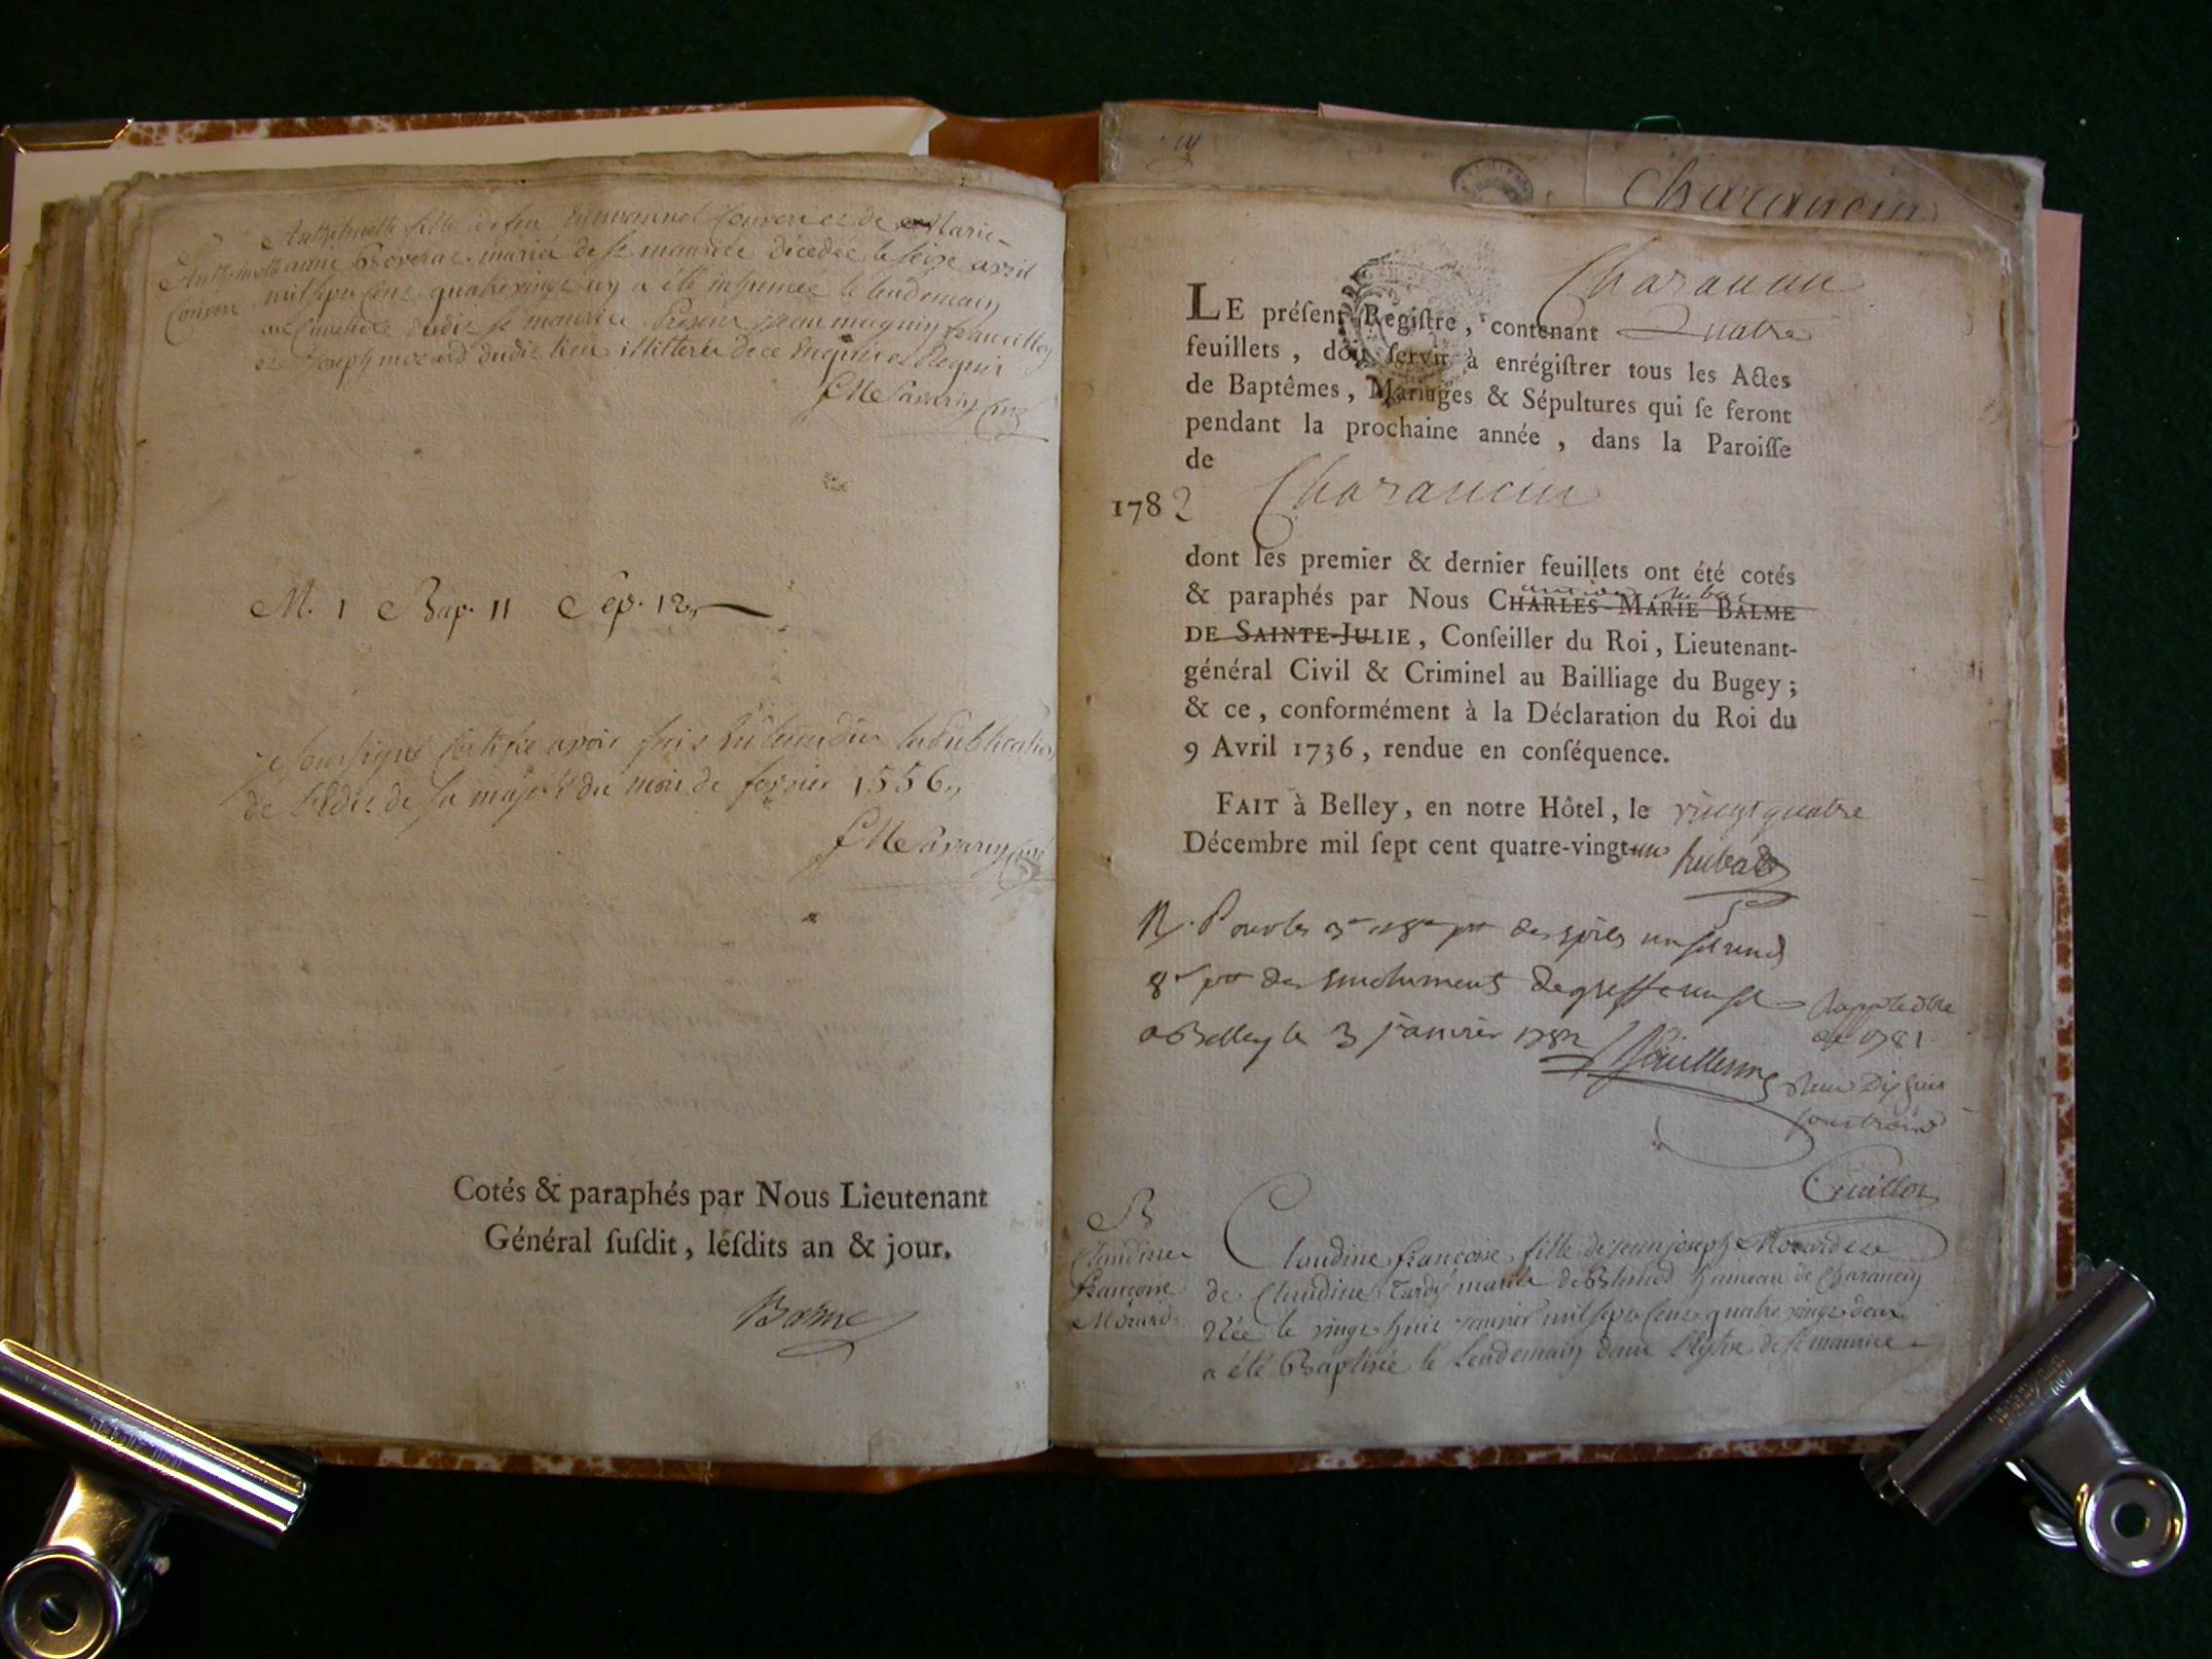 fille de feu Emmanuel Couvert et de Marie
Anthelmette anne mariée de st maurice décédée le seize avril
Couvert mil sept cent quatrevingt un a été inhumée le lendemain
au Cimetière dudit st maurice Présent jean magnin
et joseph morard dudit lieu illitterés de ce enquis et Requis
M. 1 Bap. 11 Sep. 12
je soussigné Certifie avoir fait la Publication
de L'Edit de sa majesté du mois de fevrier 1556
Cotés & paraphés par Nous Lieutenant
Général ſuſdit, leſdits an & jour.
Balme
Charancin
Charancin
LE préſent Regiſtre, contenant Quatre
feuillets, doit ſervir à enrégiſtrer tous les Actes
de Baptêmes, Mariages & Sépultures qui ſe feront
pendant la prochaine année, dans la Paroiſſe
de
1782 Charancin
dont les premier & dernier feuillets ont été cotés
& paraphés par Nous CHARLES-MARIE BALME
DE SAINTE-JULIE, Conſeiller du Roi, Lieutenant-
général Civil & Criminel au Bailliage du Bugey;
& ce, conformément à la Déclaration du Roi du
9 Avril 1736, rendue en conſéquence.
FAIT à Belley, en notre Hôtel, le vingt quatre
Décembre mil ſept cent quatre-vingt-un
R. Pour les
8 des emoluments de greffe
a Belley le 3 janvier 1782
de 1781
B
Claudine
françoise
Morard
Claudine françoise fille de jean joseph Morard et
de Claudine Tardy mariés hameau de Charancin
Née le vingt huit janvier mil sept cent quatre vingt deux
a été Baptisée le Lendemain dans L'Eglise de st maurice